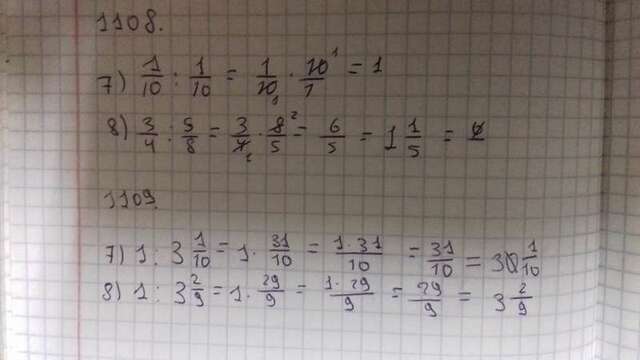 1108.
7) 1/10 : 1/10 = 1/10 · 10/1 = 1
8) 3/4 : 5/8 = 3/4 · 8/5 = 6/5 = 1 1/5 =
1109.
7) 1 : 3 1/10 = 1 · 31/10 = 1·31/10 = 31/10 = 3 1/10
8) 1 : 3 2/9 = 1 · 29/9 = 1·29/9 = 29/9 = 3 2/9